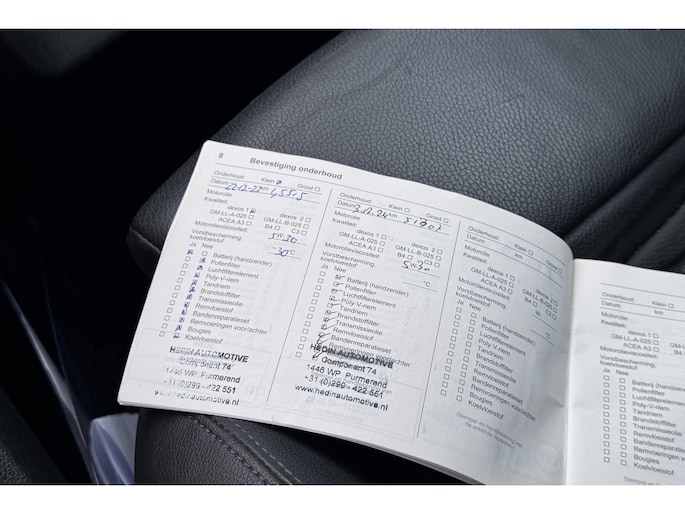 8 Bevestiging onderhoud
Onderhoud: Klein Groot
Datum 22-12-22 km 45515
Motorolie
Kwaliteit: dexos 1 dexos 2
GM-LL-A-025 GM-LL-B-025
ACEA A3 B4 C3
Motorolieviscositeit: 5W-30
Vorstbescherming, koelvloeistof -30°C
Ja Nee
Batterij (handzender)
Pollenfilter
Luchtfilterelement
Poly-V-riem
Tandriem
Brandstoffilter
Transmissieolie
Remvloeistof
Bandenreparatieset
Remvoeringen voor/achter
Bougies
Koelvloeistof
HEDIN AUTOMOTIVE
Component 74
1446 WP Purmerend
+31 (0)299 - 422 551
www.hedinautomotive.nl
Onderhoud: Klein Groot
Datum km
Motorolie
Kwaliteit: dexos 1 dexos 2
GM-LL-A-025 GM-LL-B-025
ACEA A3 B4 C3
Motorolieviscositeit: 5W30
Vorstbescherming, koelvloeistof °C
Ja Nee
Batterij (handzender)
Pollenfilter
Luchtfilterelement
Poly-V-riem
Tandriem
Brandstoffilter
Transmissieolie
Remvloeistof
Bandenreparatieset
Remvoeringen voor/achter
HEDIN AUTOMOTIVE
Component 74
1446 WP Purmerend
+31 (0)299 - 422 551
www.hedinautomotive.nl
Onderhoud: Klein Groot
Datum km
Motorolie
Kwaliteit: dexos 1 dexos 2
GM-LL-A-025 GM-LL-B-025
ACEA A3 B4 C3
Motorolieviscositeit: W-
Vorstbescherming, koelvloeistof °C
Ja Nee
Batterij (handzender)
Pollenfilter
Luchtfilterelement
Poly-V-riem
Tandriem
Brandstoffilter
Transmissieolie
Remvloeistof
Bandenreparatieset
Remvoeringen voor/achter
Bougies
Koelvloeistof
Stempel en handtekening van de erkende reparateur
Onderhoud: Klein
Datum km
Motorolie
Kwaliteit: dexos 1
GM-LL-A-025
ACEA A3
Motorolieviscositeit:
Vorstbescherming, koelvloeistof
Ja Nee
Batterij (handz
Pollenfilter
Luchtfilterelement
Poly-V-riem
Tandriem
Brandstoffilter
Transmissieolie
Remvloeistof
Bandenreparaties
Remvoeringen vo
Bougies
Koelvloeistof